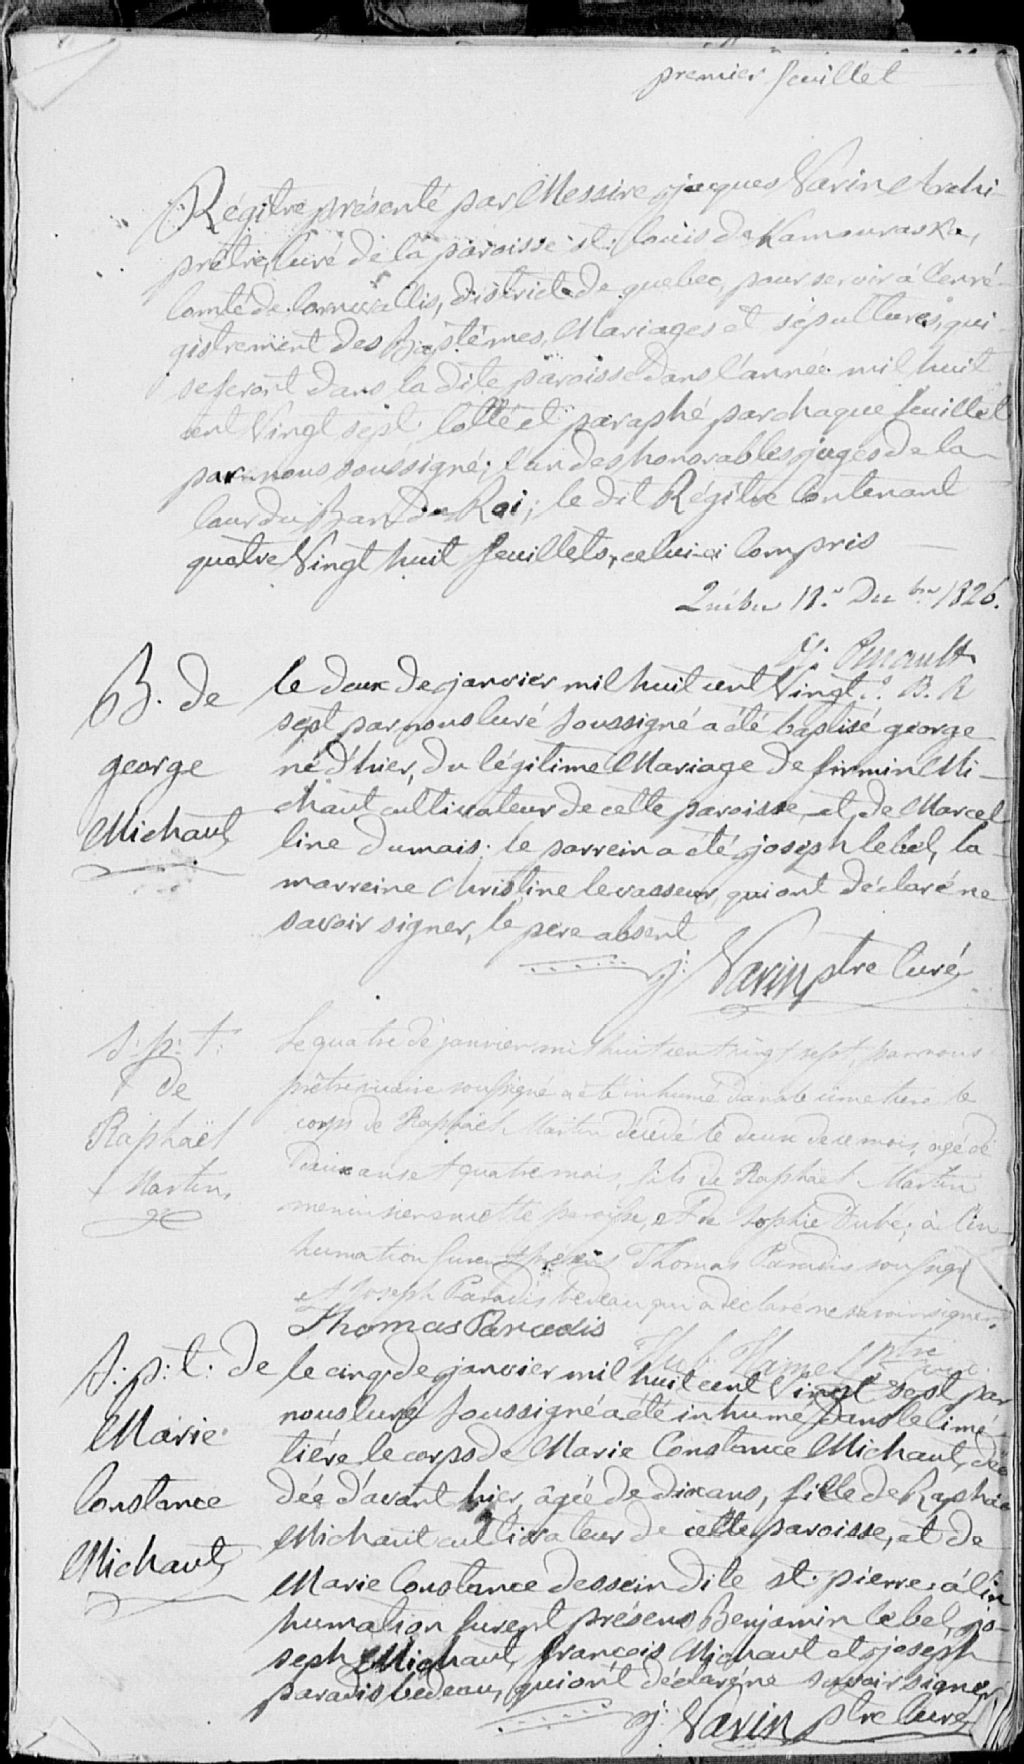 premier feuillet
Régitre présenté par Messire jaques Varin Archi-
prêtre, curé de la paroisse st. louis de Kamouraska,
Comté de Cornwallis, district de quebec, pour servir à l'enré-
gistrement des Baptêmes, Mariages et sépultures, qui
se feront dans la dite paroisse dans l'année mil huit
cent Vingt sept, Cotté et paraphé par chaque feuillet
par nous soussigné; l'un des honorables juges de la
Cour du Banc du Roi; le dit Régitre Contenant
quatre Vingt huit feuillets, celui ci Compris
1826.
B. de
george
Michaut
le deux de janvier mil huit cent Vingt B. R
sept par nous Curé soussigné a été baptisé george
né d'hier, du légitime Mariage de firmin Mi-
chaut cultivateur de cette paroisse, et de Marcel
line dumais. le parrein a été joseph lebel, la
marreine Christine levasseur, qui ont déclaré ne
savoir signer, le pere absent
j: Varin ptre Curé
S: p: t:
de
Raphaël
Martin
Le quatre de janvier mil huit cent vingt sept, par nous
prêtre vicaire soussigné a été inhumé dans le cimetiere le
corps de Raphaël Martin décédé le deux de ce mois, agé de
deux ans et quatre mois, fils de Raphaël Martin
menuisier en cette paroisse, et de Sophie Dubé; à l'in
humation furent présens Thomas Paradis soussigné
et Joseph Paradis bedeau qui a déclaré ne savoir signer.
Thomas Paradis
Hamel Ptre
S: p: t: de
Marie
Constance
Michaut
le cinq de janvier mil huit cent Vingt sept par
nous Curé soussigné a été inhumé dans le Cimé-
tiére le corps de Marie Constance Michaut, décé
dée d'avant hier, âgée de dix ans, fille de Raphaë
Michaut cultivateur de cette paroisse, et de
Marie Constance dessein dite st. pierre: à l'in
humation furent présens Benjamin lebel, jo-
seph Michaut, françois Michaut et joseph
paradis bedeau, qui ont déclaré ne savoir signer
j: Varin ptre Curé